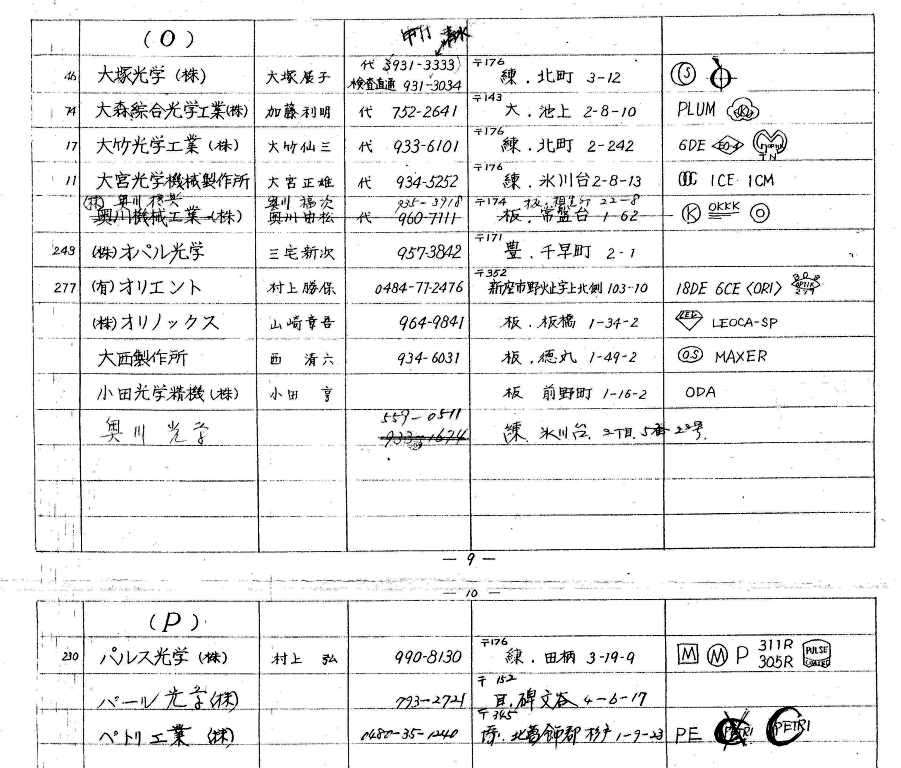 (O)
46 大塚光学(株) 大塚展子 代(931-3333) 〒176 練.北町 3-12 S
検査直通 931-3034
74 大森綜合光学工業(株) 加藤利明 代 752-2641 〒143 大.池上 2-8-10 PLUM
17 大竹光学工業(株) 大竹仙三 代 933-6101 〒176 練.北町 2-242 6DE
11 大宮光学機械製作所 大宮正雄 代 934-5252 〒176 練.氷川台2-8-13 ICE ICM
(株)奥川 奥川 福次 935-3918 板. 22-8
奥川機械工業(株) 奥川由松 代 960-7111 〒174 板.常盤台 1-62 K OKKK O
243 (株)オパル光学 三宅新次 957-3842 〒171 豊.千早町 2-1
277 (有)オリエント 村上勝保 0484-77-2476 〒352 新座市野火止字上北側103-10 18DE 6CE〈ORI〉
(株)オリノックス 山崎章吾 964-9841 板.板橋 1-34-2 LEOCA-SP
大西製作所 西 清六 934-6031 板.徳丸 1-49-2 OS MAXER
小田光学精機(株) 小田 亨 板 前野町 1-16-2 ODA
奥川光学 559-0511 練.氷川台.3丁目.5番23号.
933-1674
— 9 —
— 10 —
(P)
230 パルス光学(株) 村上 弘 990-8130 〒176 練.田柄 3-19-9 M M P 311R 305R PULSE
パール光学(株) 793-2721 〒152 目.碑文谷 4-6-17
ペトリ工業(株) 0480-35-1240 〒345 北葛飾郡杉戸 1-9-23 PE PETRI PETRI